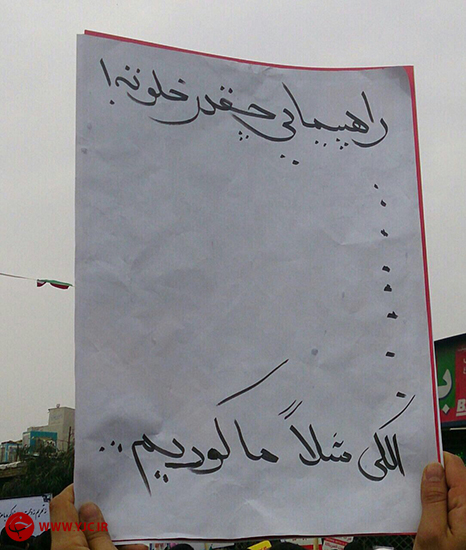 راهپیمایی چقدر خلوته!
الکی مثلاً ما کوریم...
WWW.YJC.IR